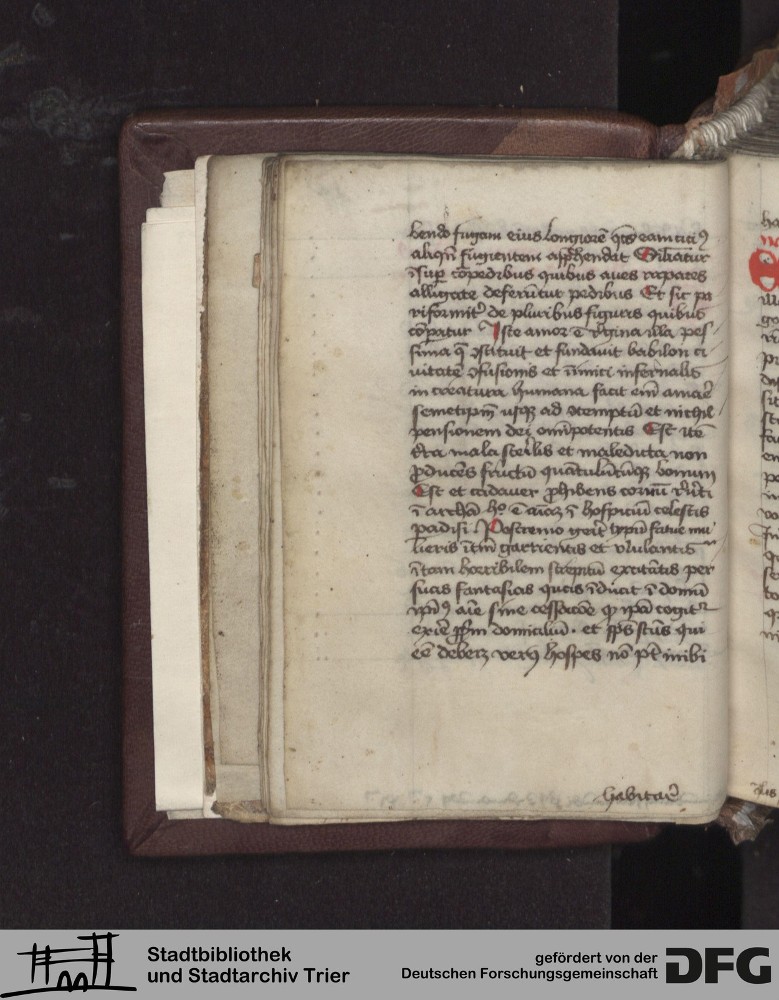 bendo fugam eius longiorē eam citi9
aliqn̄ fugientem app̄hendat Similiatur
ī sup cōpedibus quibus aues rapaces
alligate deferuntur pedibus Et sic pa
riformit̾ de pluribus figuris quibus
cōpatur Iste amor ē regina illa pes
sima q̄ ꝯstituit et fundauit babilon ci
uitatē ꝯfusionis et inimici infernalis
in creatura humana facit em̄ amare
semetipm̄ usqꝫ ad ꝯtemptū et nichil
pensionem dei om̄ipotentis Est itē
t̄ra mala sterilis et maledicta non
ꝓducens fructū quātulūcūqꝫ bonum
Est et cadauer ꝓhibens coruū
ī archā h̊ ē ī hospiciū celestis
padisi Postremo gerit typū fatue mu
lieris garrientis et ululantis
ī tam horribilem strepitū excitātis per
suas fantasias quas īducit ī domū
ip̄i9 aīe sine cessacōe ꝙ ip̄a cogit̾
exire ꝓpm̄ domiciliū . et sp̄s sc̄us qui
ēe deberꝫ verꝰ hospes nō p̄t inibi
habitarē
Stadtbibliothek
und Stadtarchiv Trier
gefördert von der
Deutschen Forschungsgemeinschaft
DFG